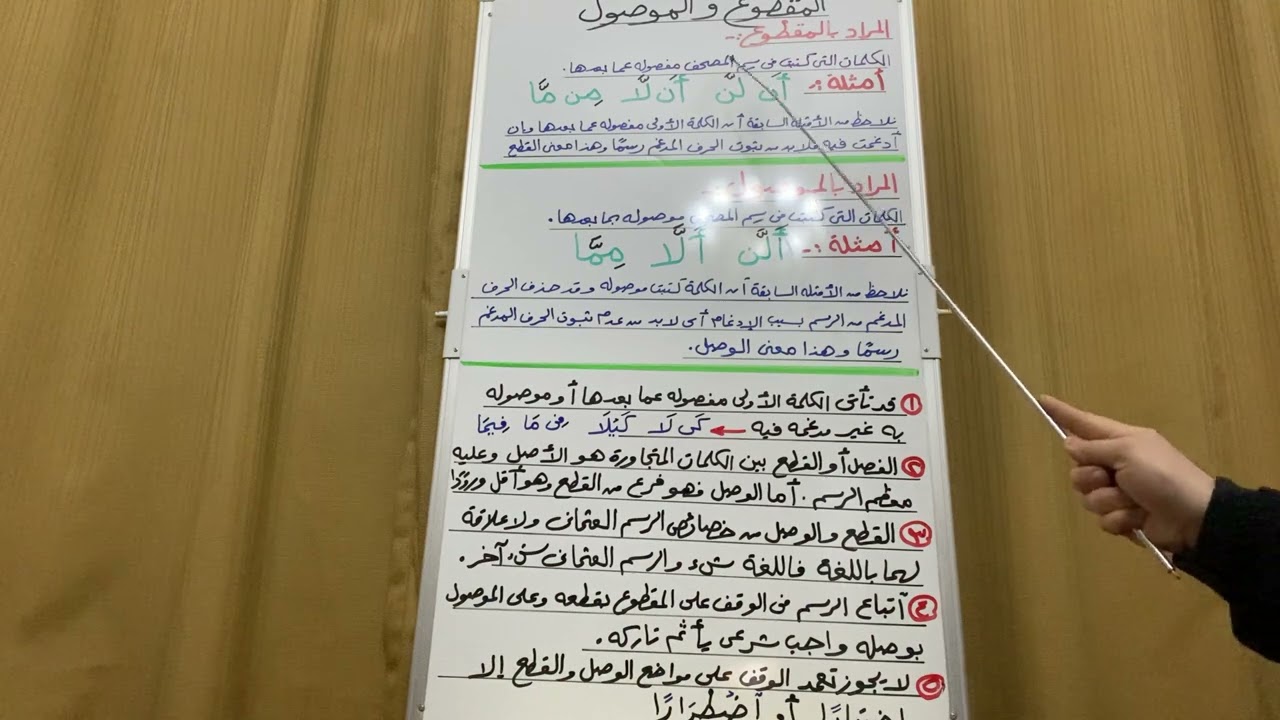 المقطوع والموصول
المراد بالمقطوع :-
الكلمات التى كتبت فى رسم المصحف مفصوله عما بعدها .
أمثلة :- أَن لَّن أَن لَّا مِن مَّا
نلاحظ من الأمثله السابقة أن الكلمة الأولى مفصوله عما بعدها وإن
أدغمت فيه فلابد من ثبوت الحرف المدغم رسمًا وهذا معنى القطع
المراد بالموصول :-
الكلمات التى كتبت فى رسم المصحف موصوله بما بعدها .
أمثلة :- أَلَّن أَلَّا مِمَّا
نلاحظ من الأمثله السابقة أن الكلمة كتبت موصوله وقد حذف الحرف
المدغم من الرسم بسبب الإدغام أى لابد من عدم ثبوت الحرف المدغم
رسمًا وهذا معنى الوصل .
١ قد تأتى الكلمة الأولى مفصوله عما بعدها أو موصوله
به غير مدغمه فيه ← كَى لَا كَيْلَا فِى مَا فِيمَا
٢ الفصل أو القطع بين الكلمات المتجاورة هو الأصل وعليه
معظم الرسم . أما الوصل فهو فرع من القطع وهو أقل ورودًا
٣ القطع والوصل من خصائص الرسم العثمانى ولا علاقة
لهما باللغة فاللغة شىء والرسم العثمانى شىء آخر .
٤ اتباع الرسم فى الوقف على المقطوع بقطعه وعلى الموصول
بوصله واجب شرعى يأثم تاركه .
٥ لا يجوز تعمد الوقف على مواضع الوصل والقطع إلا
اختبارًا أو اضْطِرَارًا